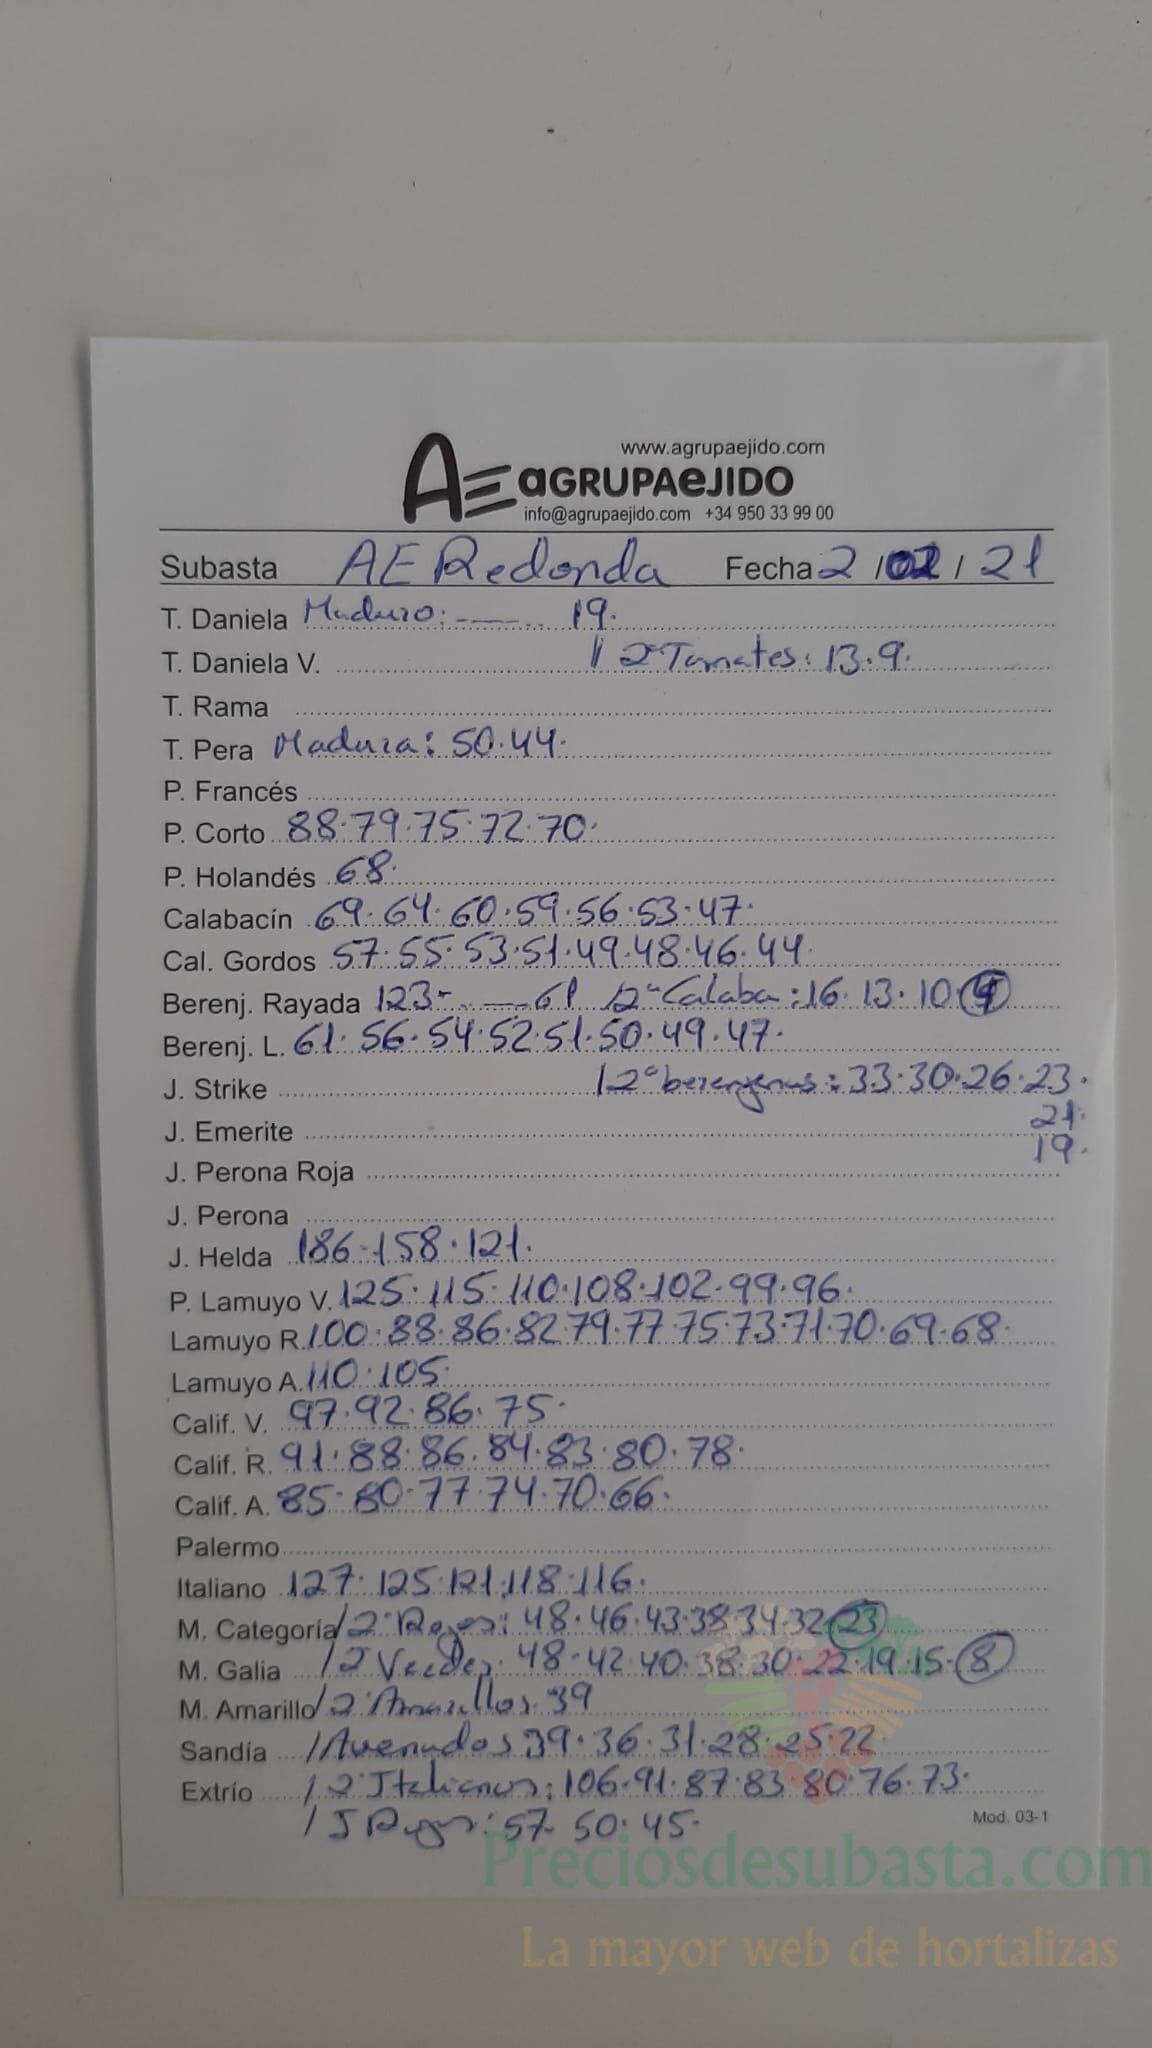 www.agrupaejido.com
AE aGRUPAeJIDO
info@agrupaejido.com +34 950 33 99 00
Subasta AE Redonda Fecha 2 / 02 / 21
T. Daniela Maduro: 19.
T. Daniela V. // 2ª Tomates: 13.9.
T. Rama
T. Pera Madura: 50.44.
P. Francés
P. Corto 88.79.75.72.70.
P. Holandés 68.
Calabacín 69.64.60.59.56.53.47.
Cal. Gordos 57.55.53.51.49.48.46.44
Berenj. Rayada 123- —61 /2ª Calaba: 16.13.10
Berenj. L. 61.56.54.52.51.50.49.47.
J. Strike /2ª berenjenas: 33.30.26.23.
J. Emerite 21.
19.
J. Perona Roja
J. Perona
J. Helda 186.158.121.
P. Lamuyo V. 125.115.110.108.102.99.96.
Lamuyo R. 100.88.86.82.79.77.75.73.71.70.69.68.
Lamuyo A. 110.105.
Calif. V. 97.92.86.75.
Calif. R. 91.88.86.84.83.80.78.
Calif. A. 85.80.77.74.70.66.
Palermo
Italiano 127.125.121.118.116.
M. Categoría /2ª Rojos: 48.46.43.38.34.32.23
M. Galia /2 Verdes. 48.42.40.38.30.22.19.15.8
M. Amarillo /2ª Amarillos. 39
Sandía /Avenados 39.36.31.28.25.22
Extrío /2 Italianos: 106.91.87.83.80.76.73.
/J Rojos: 57.50.45.
Mod. 03-1
Preciosdesubasta.com
La mayor web de hortalizas